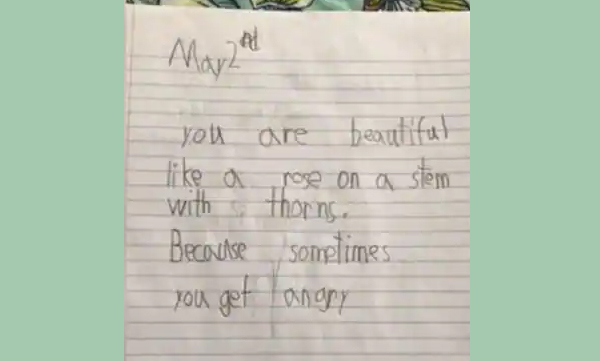 May 2nd
you are beautiful
like a rose on a stem
with thorns.
Because sometimes
you get angry